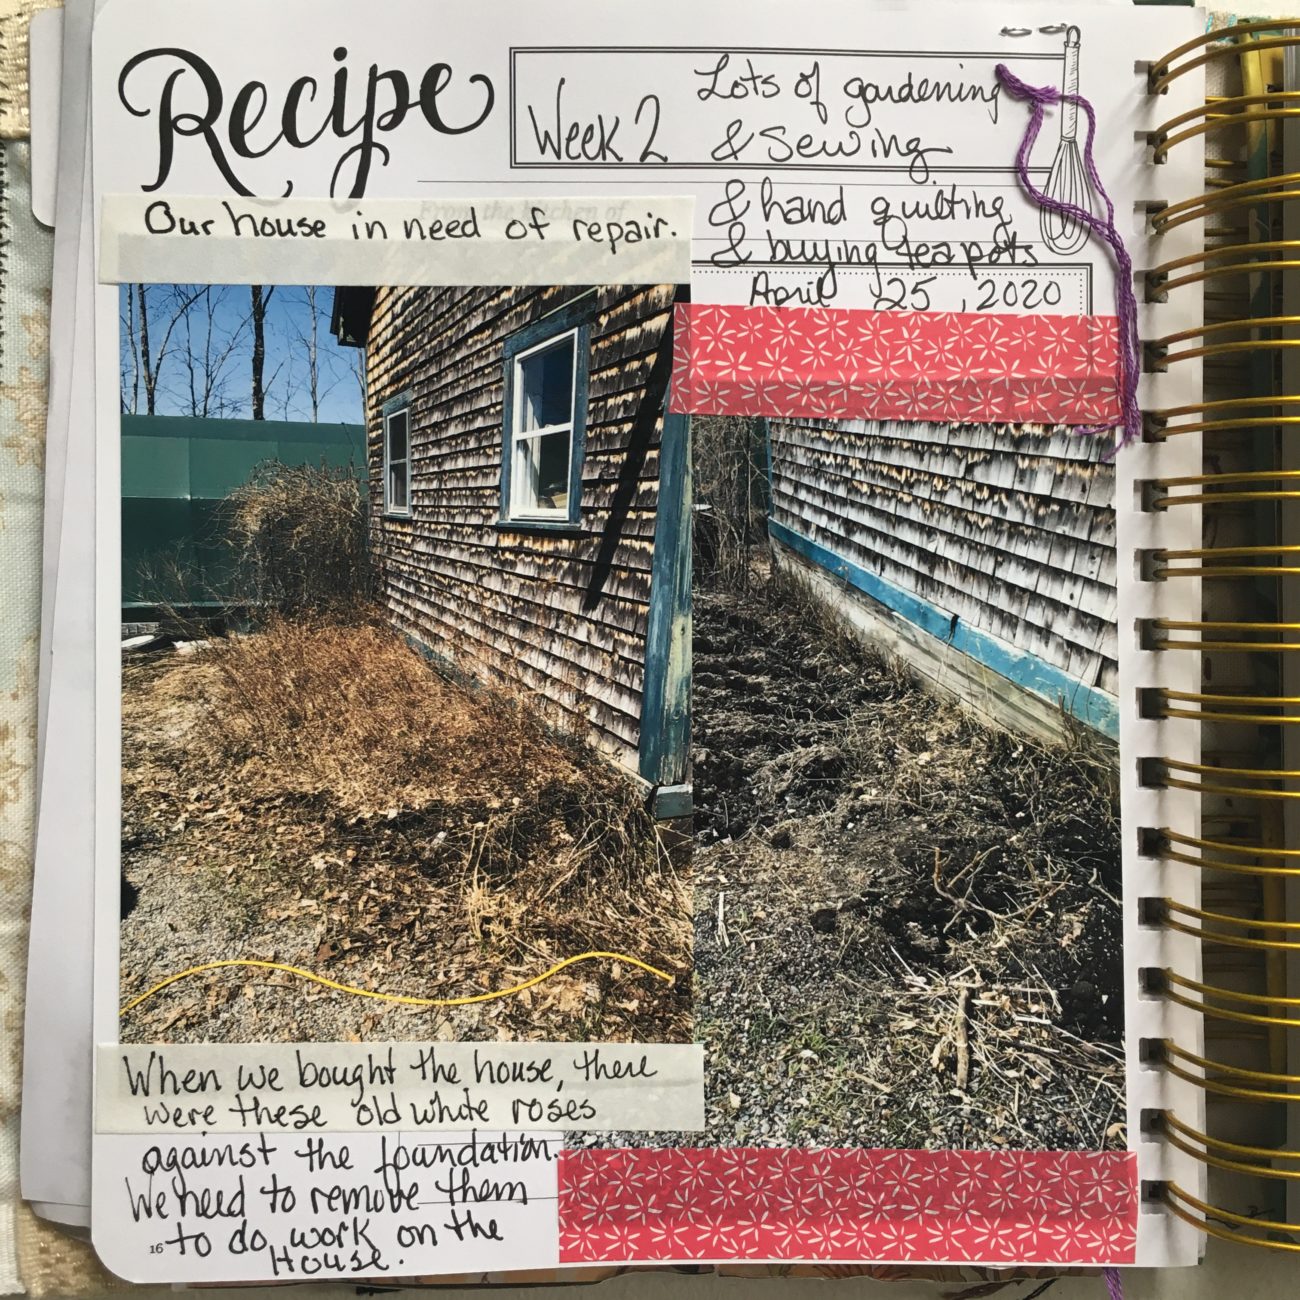 Recipe
Week 2
Lots of gardening
& Sewing
& hand quilting
& buying tea pots
April 25, 2020
From the kitchen of
Our house in need of repair.
When we bought the house, there
were these old white roses
against the foundation.
We need to remove them
to do work on the
House.
16